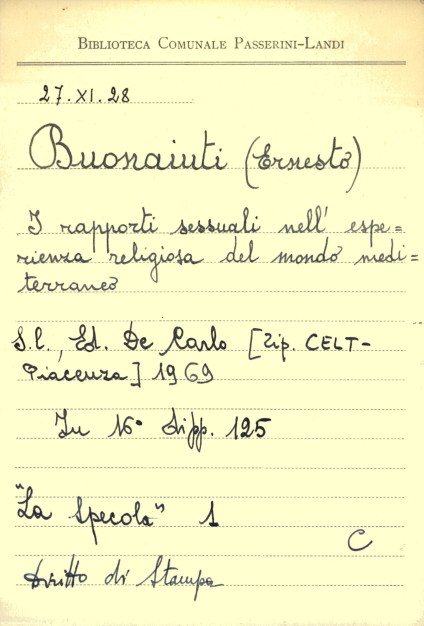 BIBLIOTECA COMUNALE PASSERINI-LANDI
27.XI.28
Buonaiuti (Ernesto)
I rapporti sessuali nell' espe=
rienza religiosa del mondo medi=
terraneo
S.l., Ed. De Carlo [Tip. CELT-
Piacenza] 1969
In 16° di pp. 125
"La Specola" 1
C
Diritto di Stampa